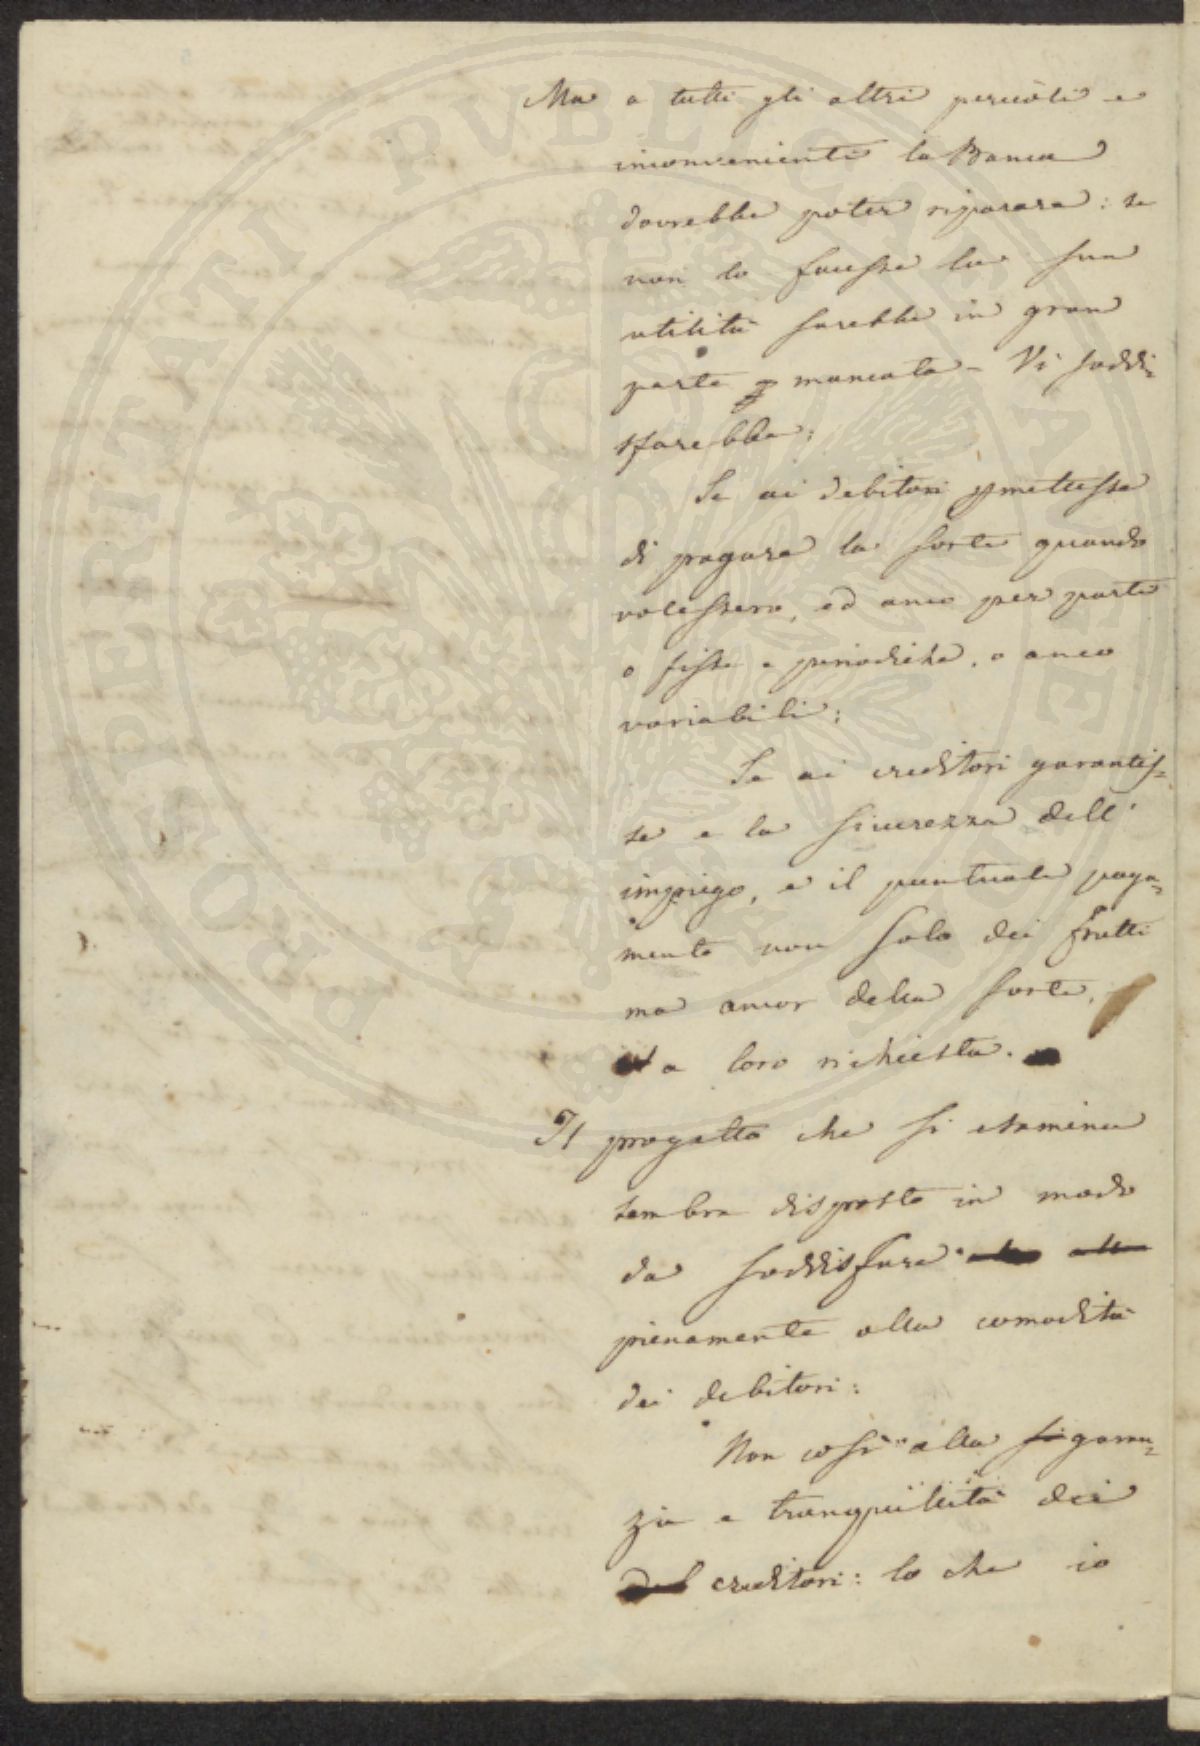 Ma a tutti gli altri pericoli e
inconvenienti la Banca
dovrebbe poter riparare: se
non lo facesse la sua
utilità sarebbe in gran
parte mancata – Vi soddi-
sfarebbe:
Se ai debitori pmettesse
di pagare la sorte quando
volessero, ed anco per parte
o fisse e periodiche, o anco
variabili:
Se ai creditori garantis-
se e la sicurezza dell'
impiego, e il puntuale paga-
mento non solo dei frutti
ma ancor della sorte,
a loro richiesta.
Il progetto che si esamina
sembra disposto in modo
da soddisfare
pienamente alla comodità
dei debitori:
Non così alla garan-
zia e tranquillità dei
creditori: lo che io
PROSPERITATI PVBLICAE AVGENDAE